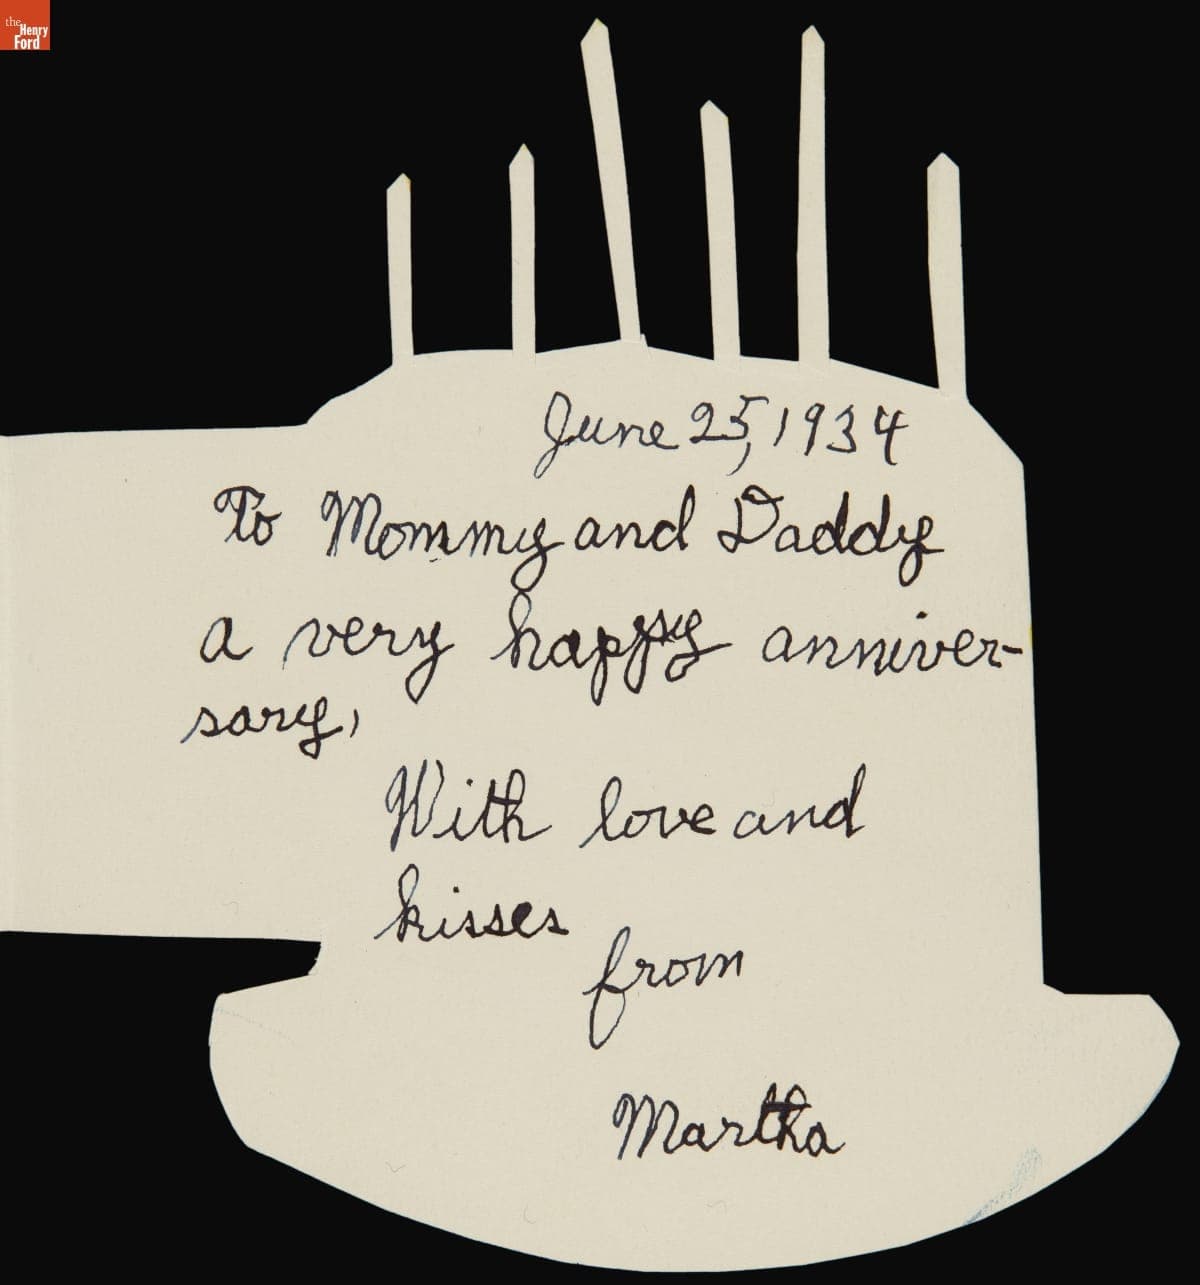 the
Henry
Ford
June 25, 1934
To Mommy and Daddy
a very happy anniver-
sary,
With love and
kisses
from
Martha